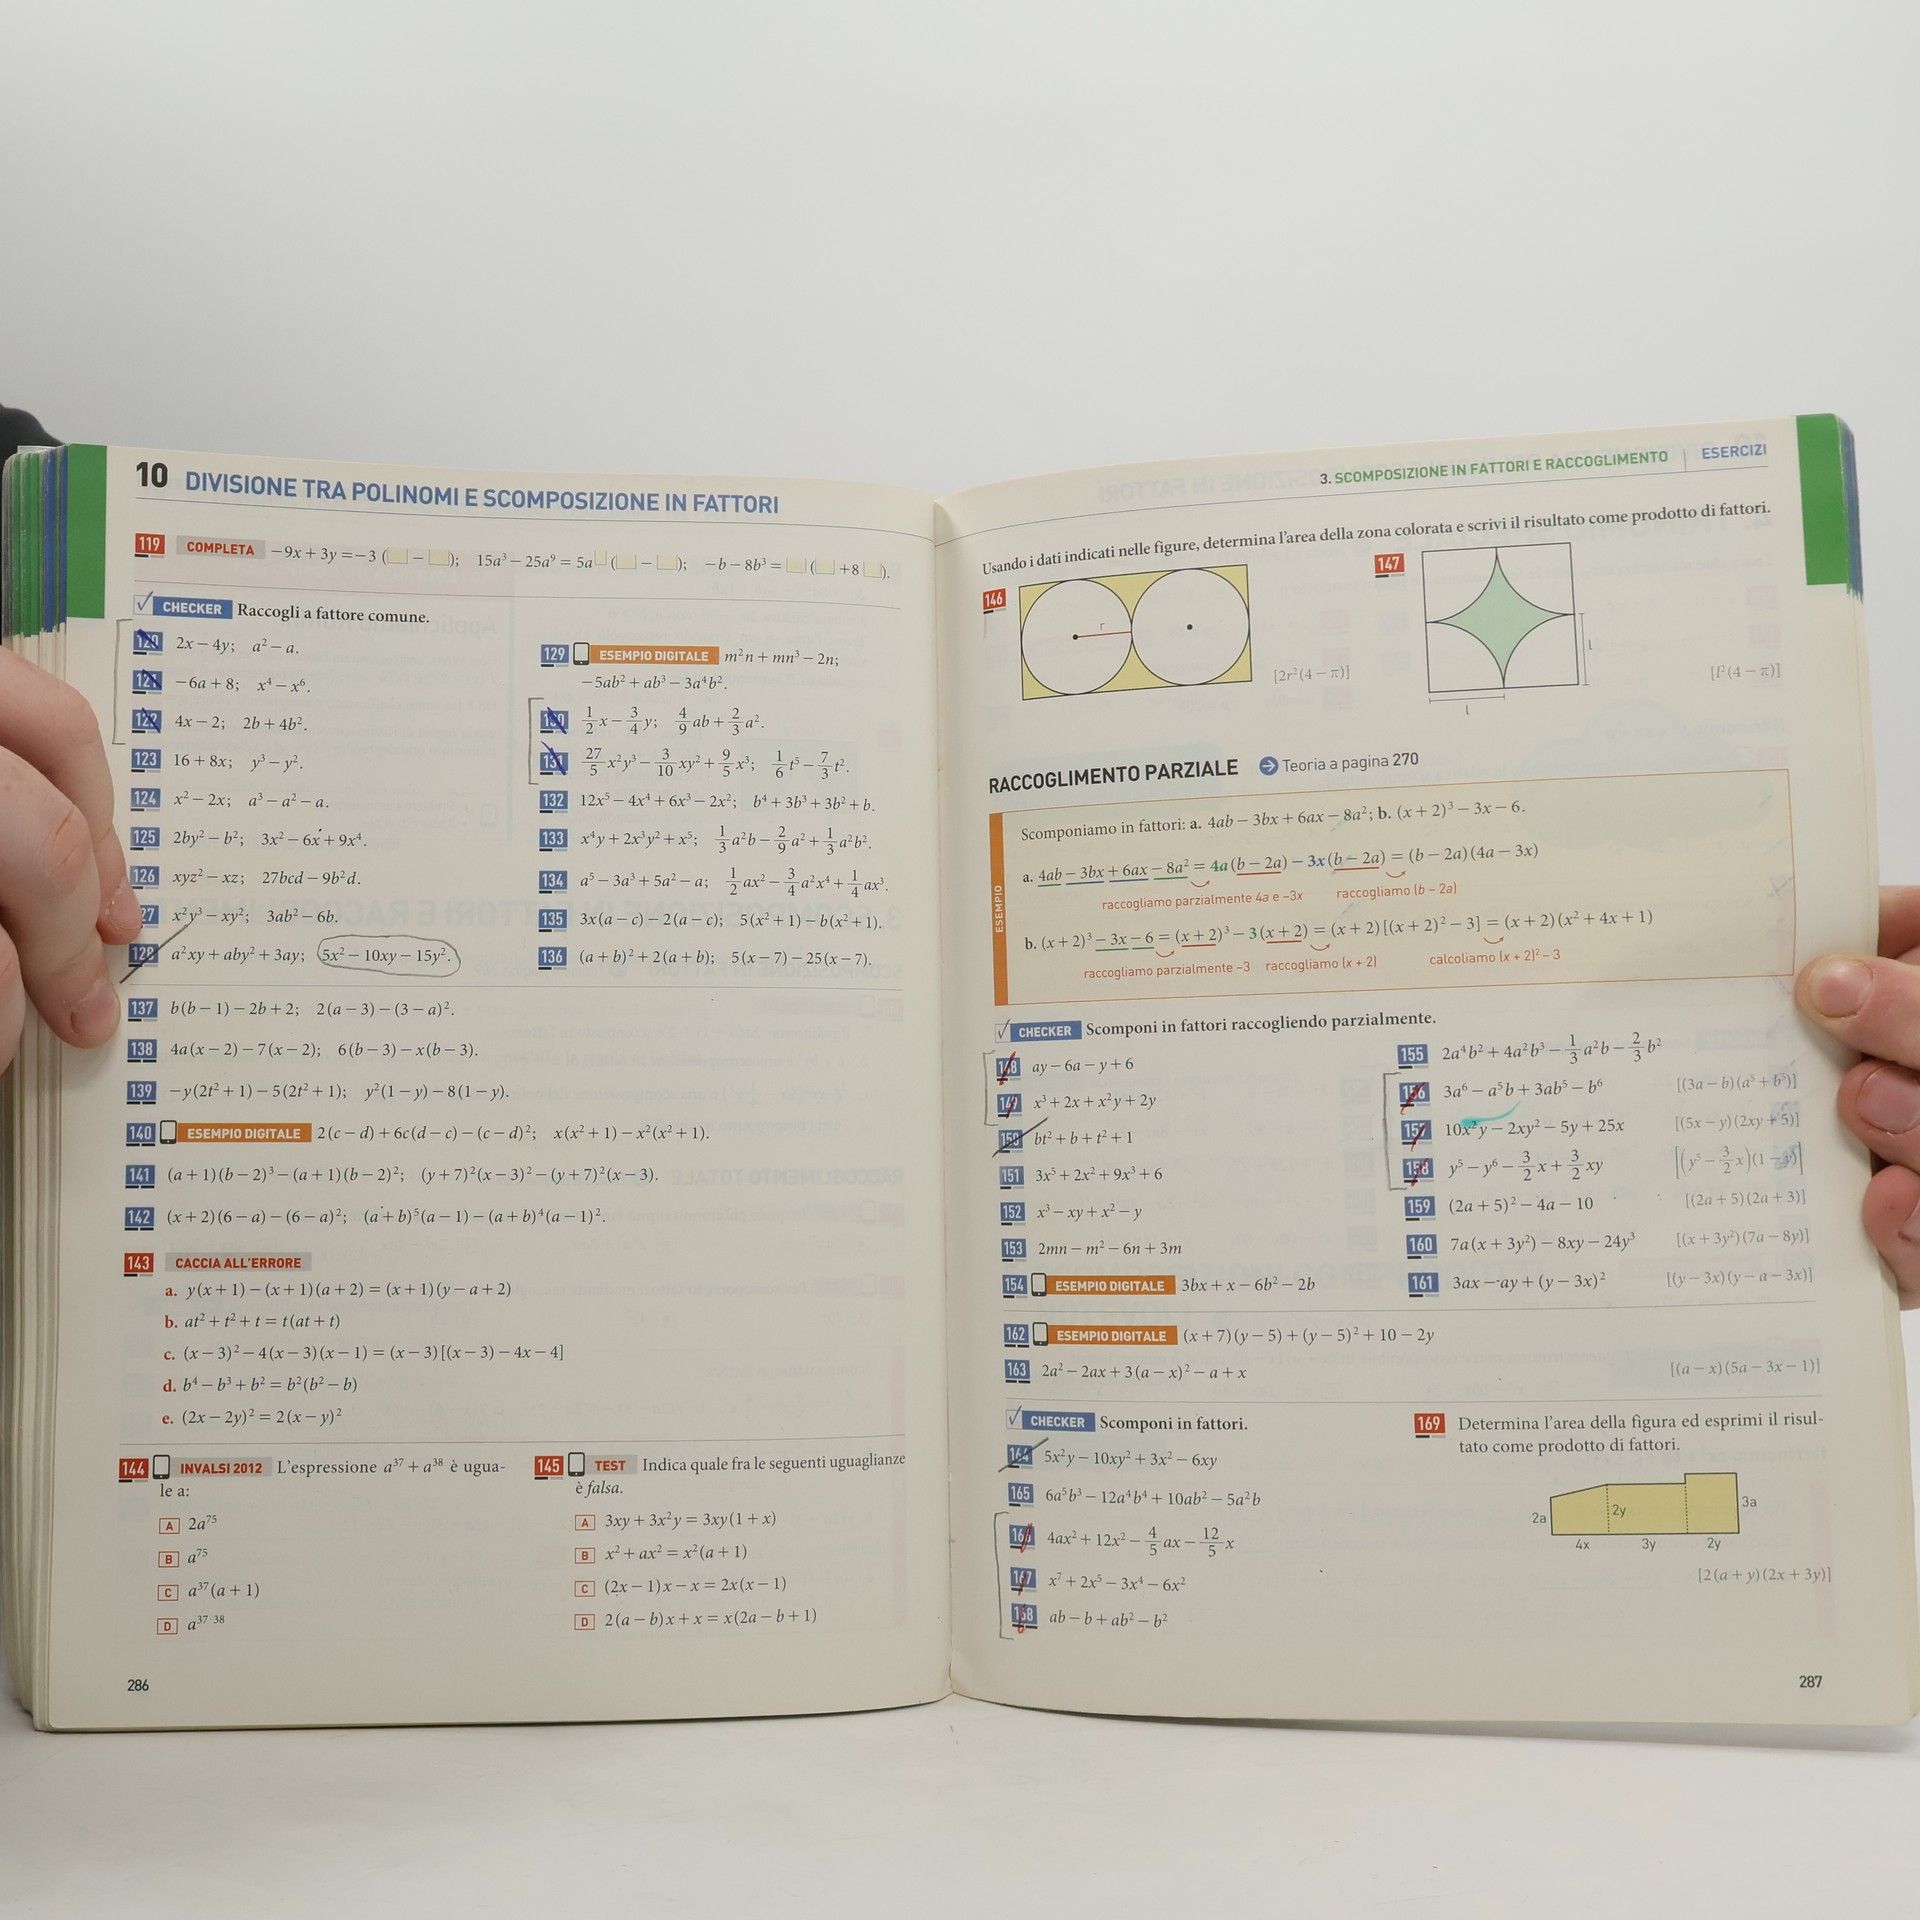 10 DIVISIONE TRA POLINOMI E SCOMPOSIZIONE IN FATTORI
119 COMPLETA −9x + 3y = −3 (□ − □); 15a³ − 25a⁹ = 5a□ (□ − □); −b − 8b³ = □ (□ +8 □).
CHECKER Raccogli a fattore comune.
120 2x − 4y; a² − a.
121 −6a + 8; x⁴ − x⁶.
122 4x − 2; 2b + 4b².
123 16 + 8x; y³ − y².
124 x² − 2x; a³ − a² − a.
125 2by² − b²; 3x² − 6x + 9x⁴.
126 xyz² − xz; 27bcd − 9b²d.
27 x²y³ − xy²; 3ab² − 6b.
128 a²xy + aby² + 3ay; 5x² − 10xy − 15y².
129 ESEMPIO DIGITALE m²n + mn³ − 2n;
−5ab² + ab³ − 3a⁴b².
130 1/2 x − 3/4 y; 4/9 ab + 2/3 a².
131 27/5 x²y³ − 3/10 xy² + 9/5 x³; 1/6 t⁵ − 7/3 t².
132 12x⁵ − 4x⁴ + 6x³ − 2x²; b⁴ + 3b³ + 3b² + b.
133 x⁴y + 2x³y² + x⁵; 1/3 a²b − 2/9 a² + 1/3 a²b².
134 a⁵ − 3a³ + 5a² − a; 1/2 ax² − 3/4 a²x⁴ + 1/4 ax³.
135 3x(a − c) − 2(a − c); 5(x² + 1) − b(x² + 1).
136 (a + b)² + 2(a + b); 5(x − 7) − 25(x − 7).
137 b(b − 1) − 2b + 2; 2(a − 3) − (3 − a)².
138 4a(x − 2) − 7(x − 2); 6(b − 3) − x(b − 3).
139 −y(2t² + 1) − 5(2t² + 1); y²(1 − y) − 8(1 − y).
140 ESEMPIO DIGITALE 2(c − d) + 6c(d − c) − (c − d)²; x(x² + 1) − x²(x² + 1).
141 (a + 1)(b − 2)³ − (a + 1)(b − 2)²; (y + 7)²(x − 3)² − (y + 7)²(x − 3).
142 (x + 2)(6 − a) − (6 − a)²; (a + b)⁵(a − 1) − (a + b)⁴(a − 1)².
143 CACCIA ALL'ERRORE
a. y(x + 1) − (x + 1)(a + 2) = (x + 1)(y − a + 2)
b. at² + t² + t = t(at + t)
c. (x − 3)² − 4(x − 3)(x − 1) = (x − 3)[(x − 3) − 4x − 4]
d. b⁴ − b³ + b² = b²(b² − b)
e. (2x − 2y)² = 2(x − y)²
144 INVALSI 2012 L'espressione a³⁷ + a³⁸ è ugua-
le a:
A 2a⁷⁵
B a⁷⁵
C a³⁷(a + 1)
D a³⁷·³⁸
145 TEST Indica quale fra le seguenti uguaglianze
è falsa.
A 3xy + 3x²y = 3xy(1 + x)
B x² + ax² = x²(a + 1)
C (2x − 1)x − x = 2x(x − 1)
D 2(a − b)x + x = x(2a − b + 1)
286
3. SCOMPOSIZIONE IN FATTORI E RACCOGLIMENTO | ESERCIZI
Usando i dati indicati nelle figure, determina l'area della zona colorata e scrivi il risultato come prodotto di fattori.
146
r
[2r²(4 − π)]
147
l
l
[l²(4 − π)]
RACCOGLIMENTO PARZIALE Teoria a pagina 270
ESEMPIO
Scomponiamo in fattori: a. 4ab − 3bx + 6ax − 8a²; b. (x + 2)³ − 3x − 6.
a. 4ab − 3bx + 6ax − 8a² = 4a(b − 2a) − 3x(b − 2a) = (b − 2a)(4a − 3x)
raccogliamo parzialmente 4a e −3x raccogliamo (b − 2a)
b. (x + 2)³ − 3x − 6 = (x + 2)³ − 3(x + 2) = (x + 2)[(x + 2)² − 3] = (x + 2)(x² + 4x + 1)
raccogliamo parzialmente −3 raccogliamo (x + 2) calcoliamo (x + 2)² − 3
CHECKER Scomponi in fattori raccogliendo parzialmente.
148 ay − 6a − y + 6
149 x³ + 2x + x²y + 2y
150 bt² + b + t² + 1
151 3x⁵ + 2x² + 9x³ + 6
152 x³ − xy + x² − y
153 2mn − m² − 6n + 3m
154 ESEMPIO DIGITALE 3bx + x − 6b² − 2b
155 2a⁴b² + 4a²b³ − 1/3 a²b − 2/3 b²
156 3a⁶ − a⁵b + 3ab⁵ − b⁶ [(3a − b)(a⁵ + b⁵)]
157 10x²y − 2xy² − 5y + 25x [(5x − y)(2xy + 5)]
158 y⁵ − y⁶ − 3/2 x + 3/2 xy [(y⁵ − 3/2 x)(1 − y)]
159 (2a + 5)² − 4a − 10 [(2a + 5)(2a + 3)]
160 7a(x + 3y²) − 8xy − 24y³ [(x + 3y²)(7a − 8y)]
161 3ax − ay + (y − 3x)² [(y − 3x)(y − a − 3x)]
162 ESEMPIO DIGITALE (x + 7)(y − 5) + (y − 5)² + 10 − 2y
163 2a² − 2ax + 3(a − x)² − a + x [(a − x)(5a − 3x − 1)]
CHECKER Scomponi in fattori.
164 5x²y − 10xy² + 3x² − 6xy
165 6a⁵b³ − 12a⁴b⁴ + 10ab² − 5a²b
166 4ax² + 12x² − 4/5 ax − 12/5 x
167 x⁷ + 2x⁵ − 3x⁴ − 6x²
168 ab − b + ab² − b²
169 Determina l'area della figura ed esprimi il risul-
tato come prodotto di fattori.
2a 2y 3a
4x 3y 2y
[2(a + y)(2x + 3y)]
287